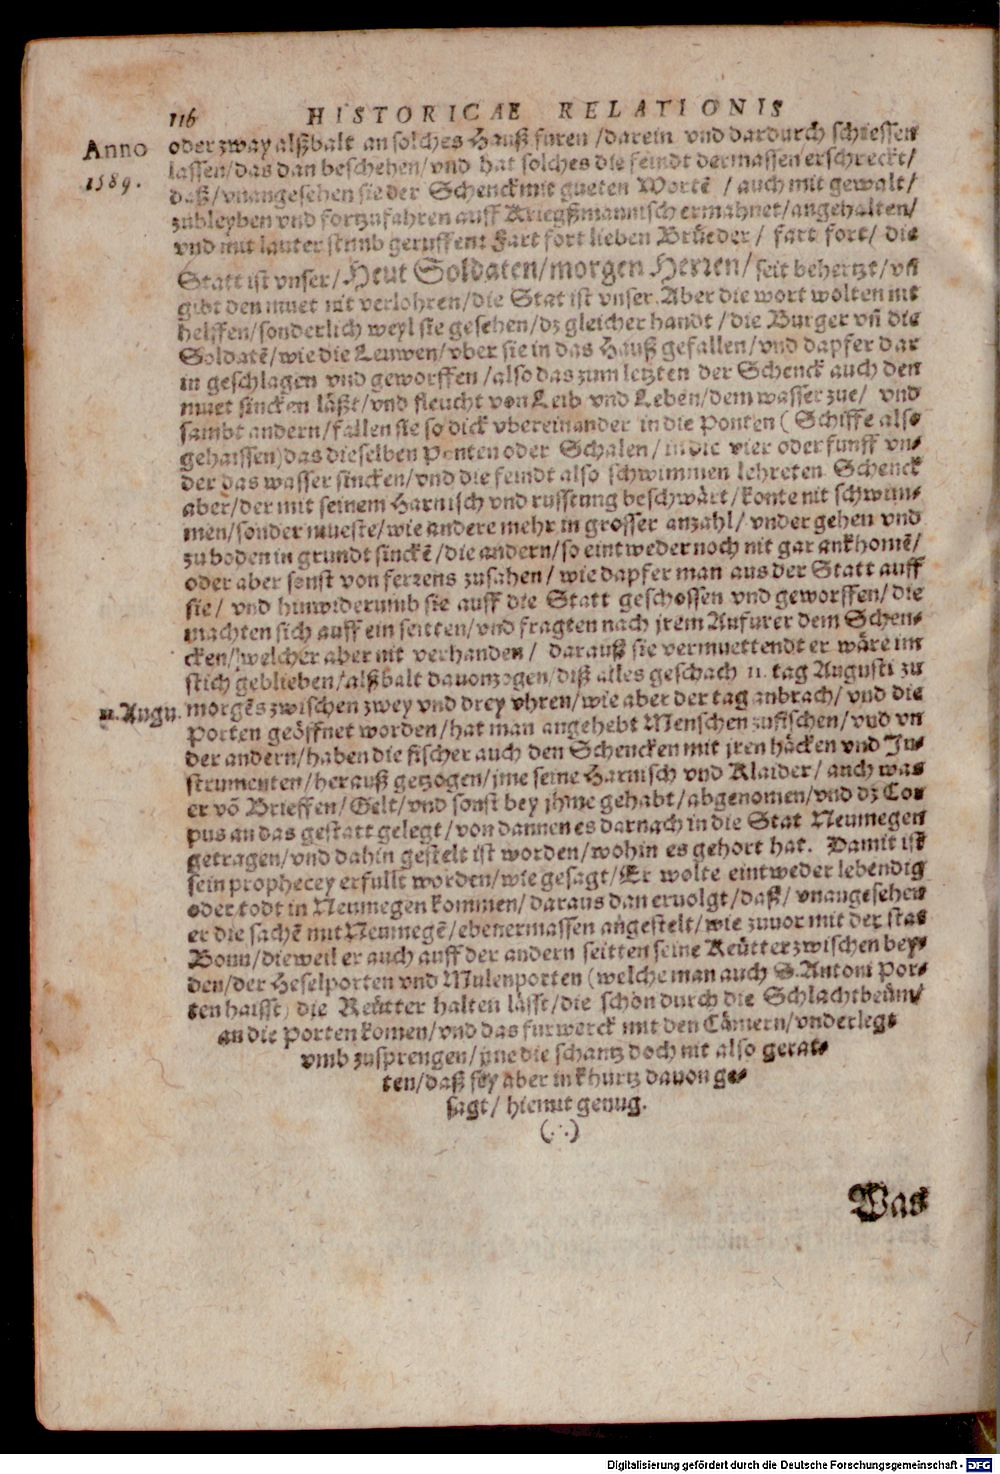 116 HISTORICAE RELATIONIS
Anno
1589.
oder zway alßbalt an solches Hauß furen / darein vnd dardurch schiessen
lassen / das dan beschehen / vnd hat solches die feindt dermassen erschreckt /
daß / vnangesehen sie der Schenck mit gueten Wortẽ / auch mit gewalt /
zubleyben vnd fortzufahren auff Kriegßmannisch ermahnet / angehalten /
vnd mit lauter stimb geruffent Fart fort lieben Brüeder / fart fort / die
Statt ist vnser / Heut Soldaten / morgen Herren / seit behertzt / vñ
gibt den muet nit verlohren / die Stat ist vnser. Aber die wort wolten nit
helffen / sonderlich weyl sie gesehen / dz gleicher handt / die Burger vñ die
Soldatẽ / wie die Leuwen / vber sie in das Hauß gefallen / vnd dapfer dar
in geschlagen vnd geworffen / also das zum letzten der Schenck auch den
muet sincken läßt / vnd fleucht von Leib vnd Leben / dem wasser zue / vnd
sambt andern / fallen sie so dick vbereinander in die Ponten ( Schiffe also
gehaissen) das dieselben Ponten oder Schalen / in die vier oder funff vn-
der das wasser sincken / vnd die feindt also schwimmen lehreten Schenck
aber / der mit seinem Harnisch vnd russtung beschwärt / konte nit schwim-
men / sonder mueste / wie andere mehr in grosser anzahl / vnder gehen vnd
zu boden in grundt sinckẽ / die andern / so eintweder noch nit gar ankhomẽ /
oder aber sonst von ferrens zusahen / wie dapfer man aus der Statt auff
sie / vnd hinwiderumb sie auff die Statt geschossen vnd geworffen / die
machten sich auff ein seitten / vnd fragten nach jrem Anfurer dem Schen-
cken / welcher aber nit verhanden / darauß sie vermuettendt er wäre im
stich geblieben / alßbalt dauonzogen / diß alles geschach 11. tag Augusti zu
11. Augu. morgẽs zwischen zwey vnd drey vhren / wie aber der tag anbrach / vnd die
Porten geöffnet worden / hat man angehebt Menschen zufischen / vnd vn
der andern / haben die fischer auch den Schencken mit jren häcken vnd In-
strumenten / herauß getzogen / jme seine Harnisch vnd Klaider / auch was
er võ Brieffen / Gelt / vnd sonst bey jhme gehabt / abgenomen / vnd dz Cor
pus an das gestatt gelegt / von dannen es darnach in die Stat Neumegen
getragen / vnd dahin gestelt ist worden / wohin es gehort hat. Damit ist
sein prophecey erfullt worden / wie gesagt / Er wolte eintweder lebendig
oder todt in Neumegen kommen / daraus dan eruolgt / daß / vnangesehen
er die sachẽ mit Neumegẽ / ebenermassen angestelt / wie zuuor mit der stat
Bonn / dieweil er auch auff der andern seitten seine Reütter zwischen bey-
den / der Heselporten vnd Mulenporten (welche man auch S. Antoni Por-
ten haisst) die Reütter halten lässt / die schon durch die Schlachtbeüm /
an die Porten komen / vnd das furwerck mit den Cämern / vnderlegt
vmb zusprengen / jme die schantz doch nit also gerat-
ten / daß sey aber in khurtz dauon ge-
sagt / hiemit genug.
(∴)
Was
Digitalisierung gefördert durch die Deutsche Forschungsgemeinschaft - DFG